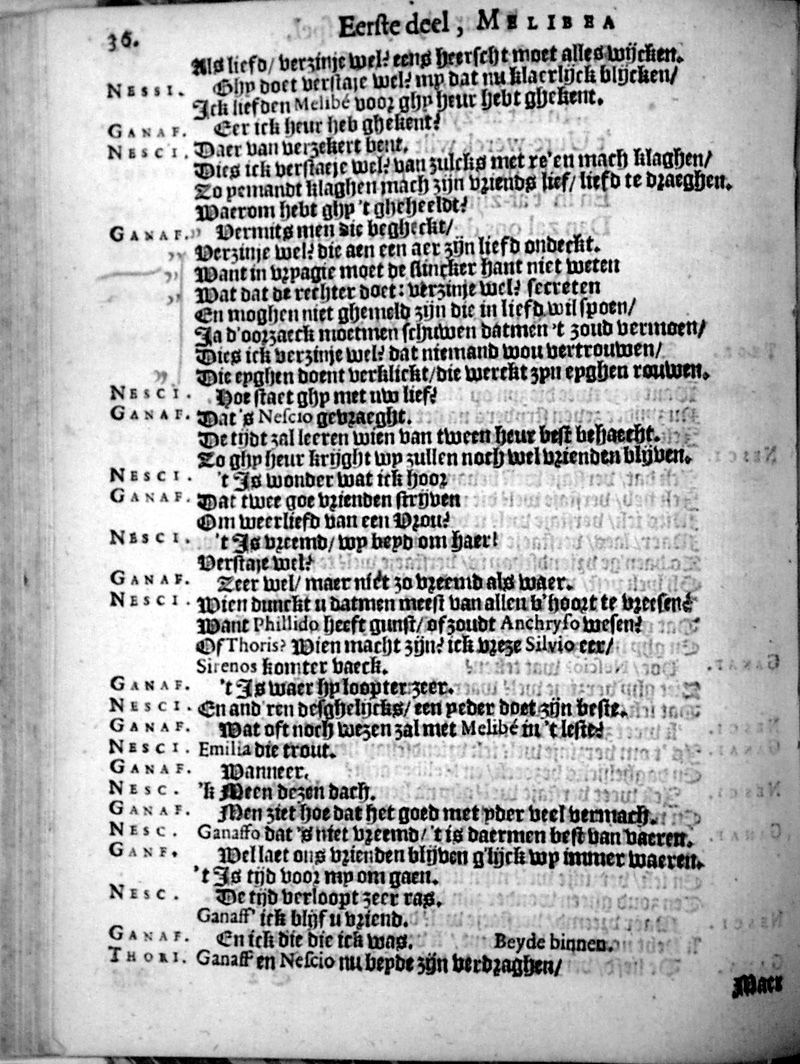 36.
Eerste deel, MELIBEA
Als liefd/ verzinje wel? eens heerscht moet alles wijcken.
NESSI. Ghy doet verstaje wel? my dat nu klaerlijck blijcken/
Ick liefden Melibé voor ghy heur hebt ghekent.
GANAF. Eer ick heur heb ghekent?
NESCI. Daer van verzekert bent.
Dies ick verstaeje wel? van zulcks met re'en mach klaghen/
Zo yemandt klaghen mach zijn vriends lief/ liefd te draeghen.
Waerom hebt ghy 't gheheeldt?
GANAF. „ Vermits men die begheckt/
„ Verzinje wel? die aen een aer zijn liefd ondeckt.
„ Want in vrpagie moet de slincker hant niet weten
„ Wat dat de rechter doet: verzinje wel? secreten
En moghen niet ghemeld zijn die in liefd wil spoen/
Ja d'oorzaeck moetmen schuwen datmen 't zoud vermoen/
Dies ick verzinje wel? dat niemand wou vertrouwen/
„ Die eyghen doent verklickt/ die werckt zyn eyghen rouwen.
NESCI. Hoe staet ghy met uw lief?
GANAF. Dat 's Nescio gevraeght.
De tijdt zal leeren wien van tween heur best behaecht.
Zo ghy heur krijght wy zullen noch wel vrienden blijven.
NESCI. 't Is wonder wat ick hoor
GANAF. Dat twee goe vrienden strijven
Om weerliefd van een Vrou?
NESCI. 't Is vreemd/ wy beyd om haer!
Verstaje wel?
GANAF. Zeer wel/ maer niet zo vreemd als waer.
NESCI. Wien dunckt u datmen meest van allen b'hoort te vreesen?
Want Phillido heeft gunst/ of zoudt Anchryso wesen?
Of Thoris? Wien macht zijn? ick vreze Silvio eer/
Sirenos komter vaeck.
GANAF. 't Is waer hy loopter zeer.
NESCI. En and'ren desghelijcks/ een yeder doet zijn beste.
GANAF. Wat oft noch wezen zal met Melibé in 't leste?
NESCI. Emilia die trout.
GANAF. Wanneer.
NESC. 'k Meen dezen dach.
GANAF. Men ziet hoe dat het goed met yder veel vermach.
NESC. Ganaffo dat 's niet vreemd/ 't is daermen best van vaeren.
GANF. Wel laet ons vrienden blijven g'lijck wy immer waeren.
't Is tijd voor my om gaen.
NESC. De tijd verloopt zeer ras.
Ganaff' ick blijf u vriend.
GANAF. En ick die die ick was. Beyde binnen.
THORI. Ganaff en Nescio nu beyde zijn verdraghen/
Maer